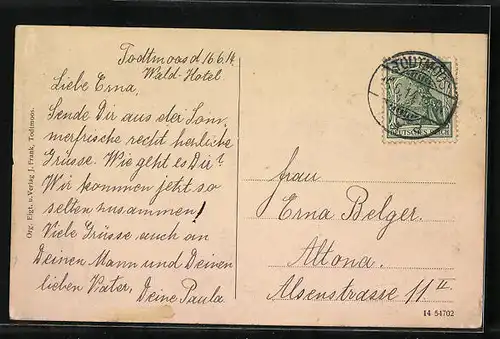 Todtmoos d 16.6.14
Wald-Hotel
Liebe Erna,
Sende Dir aus der Som„
merfrische recht herzliche
Grüsse. Wie geht es Dir?
Wir kommen jetzt so
selten zusammen!
Viele Grüsse auch an
Deinen Mann und Deinen
lieben Vater, Deine Paula
Org. Eigt. u. Verlag J. Frank, Todtmoos.
TODTMOOS
DEUTSCHES REICH
Frau
Erna Belger.
Altona.
Alsenstrasse 11 II
14 54702